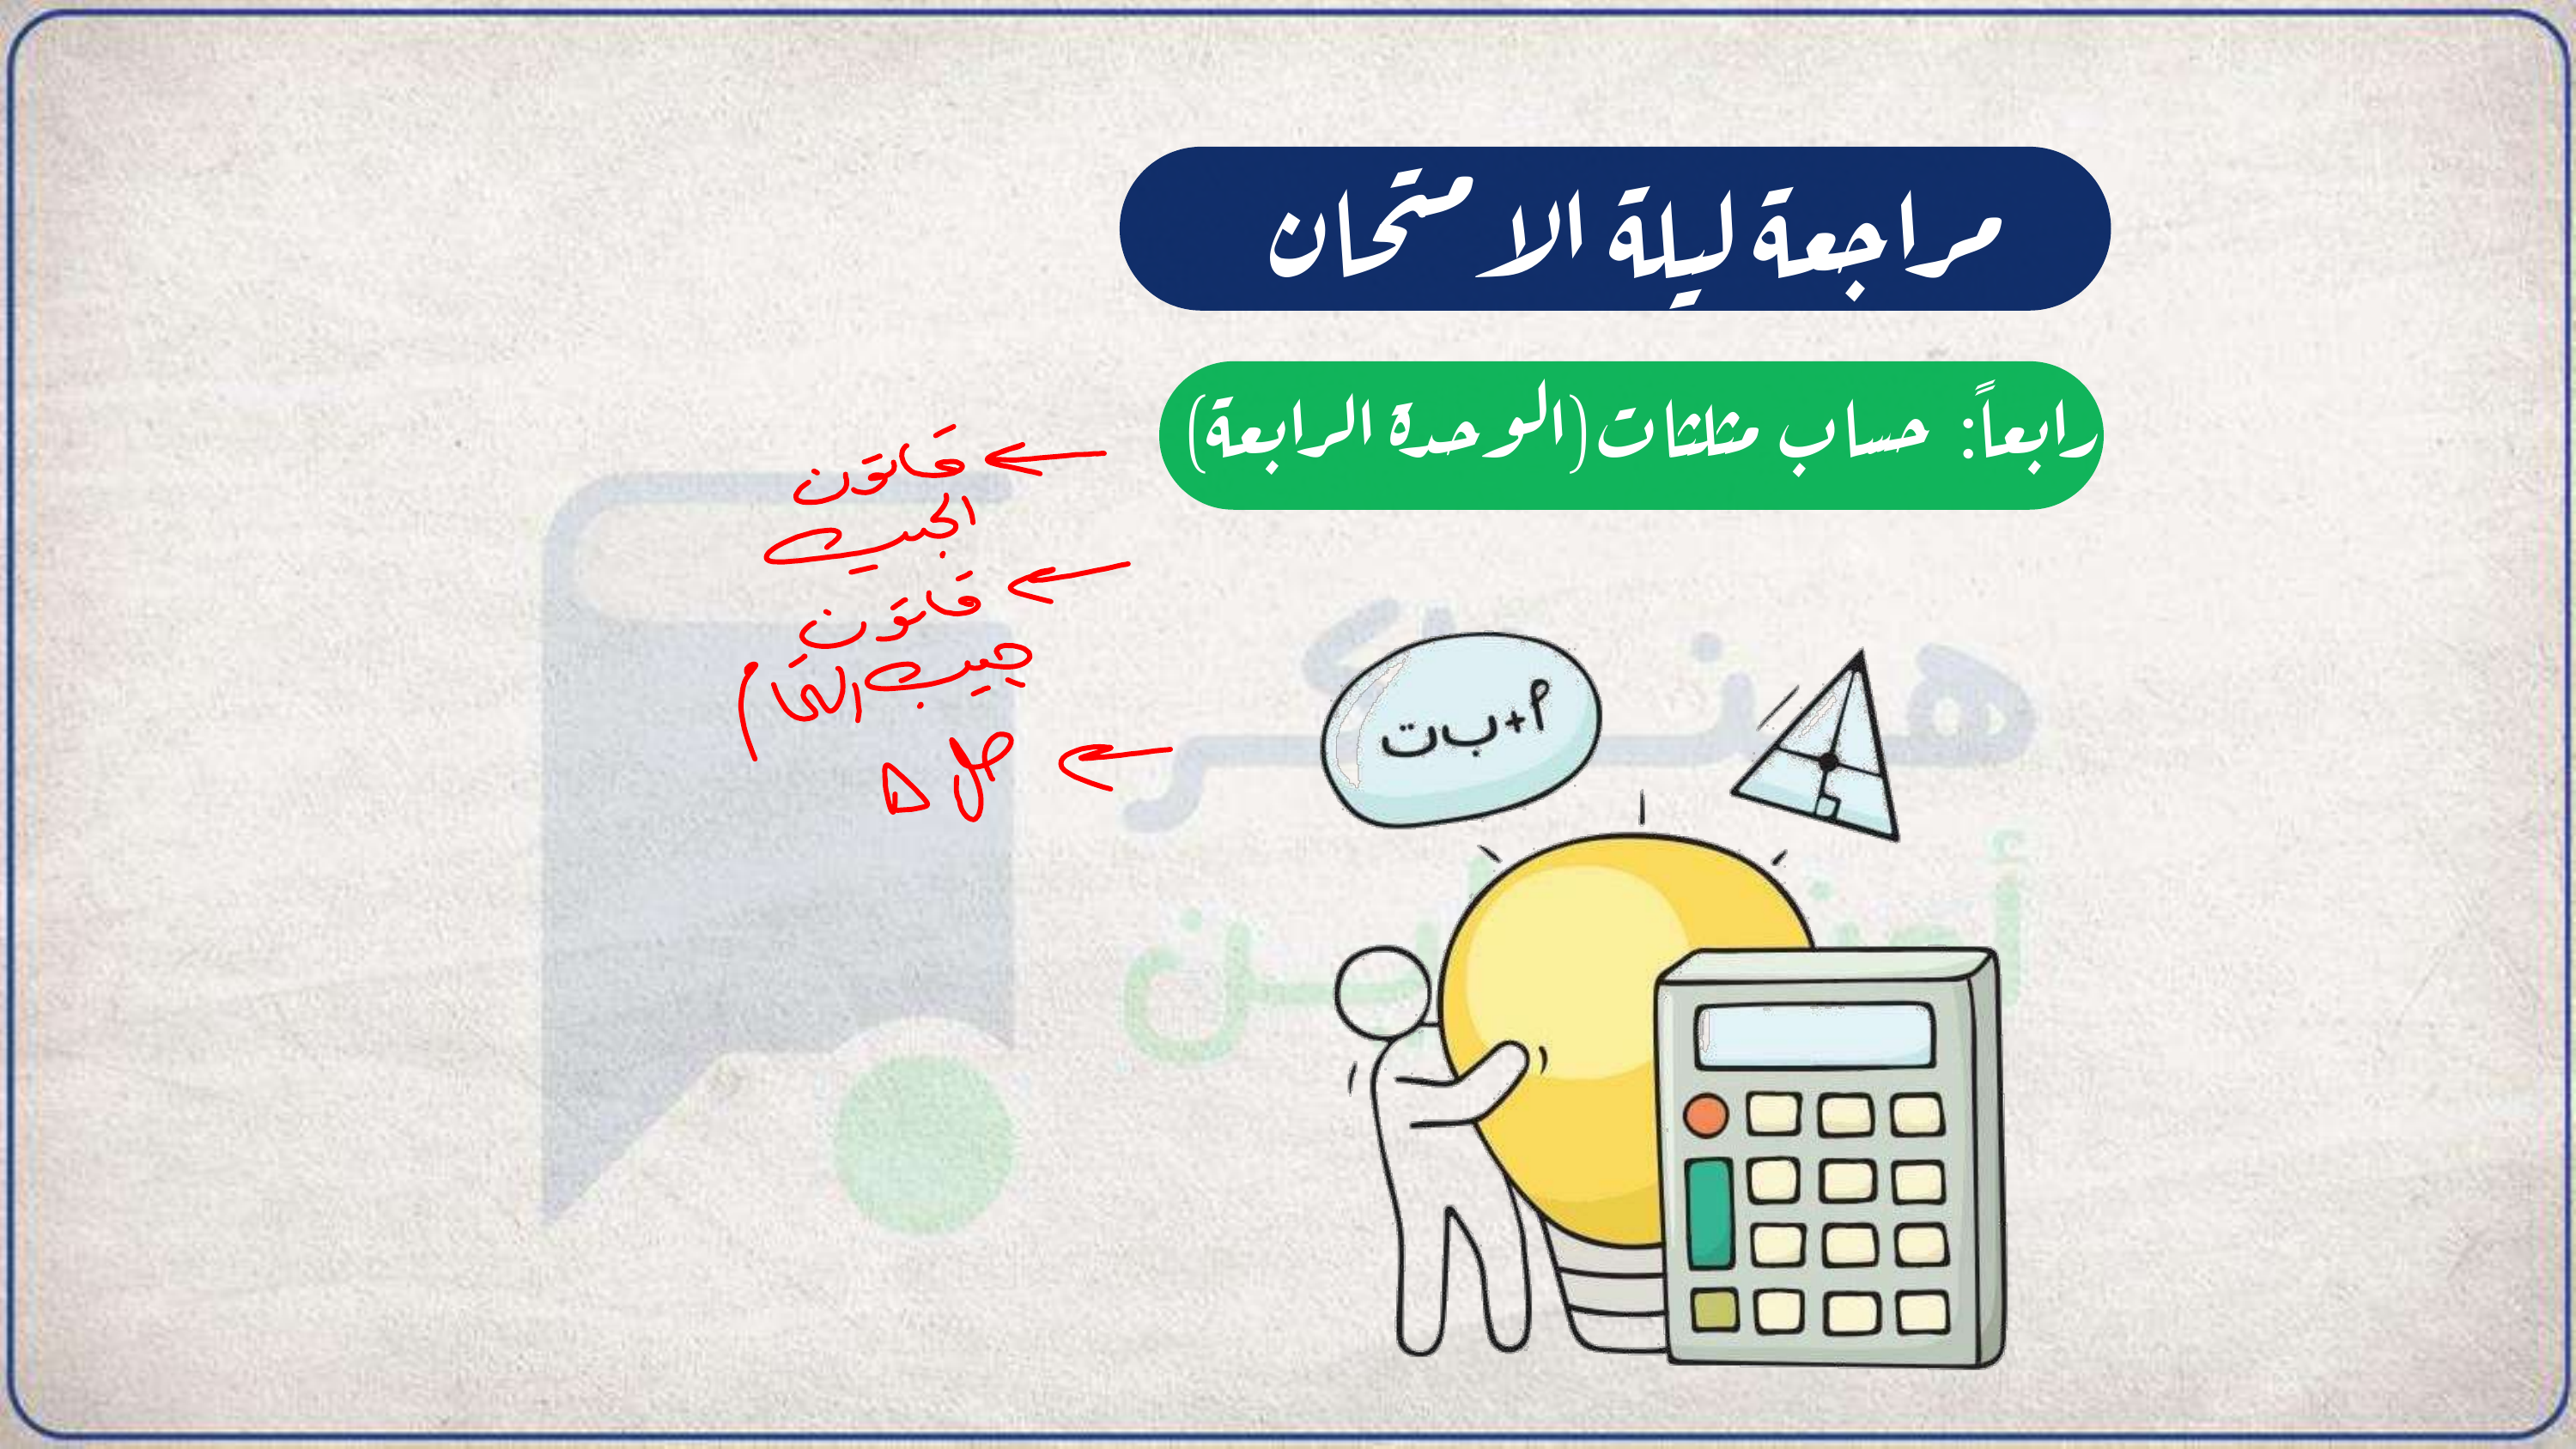 مراجعة ليلة الامتحان
رابعاً: حساب مثلثات (الوحدة الرابعة)
قانون
الجيب
قانون
جيب التمام
حل Δ
م+ب ت
هنذاكر
أونلاين